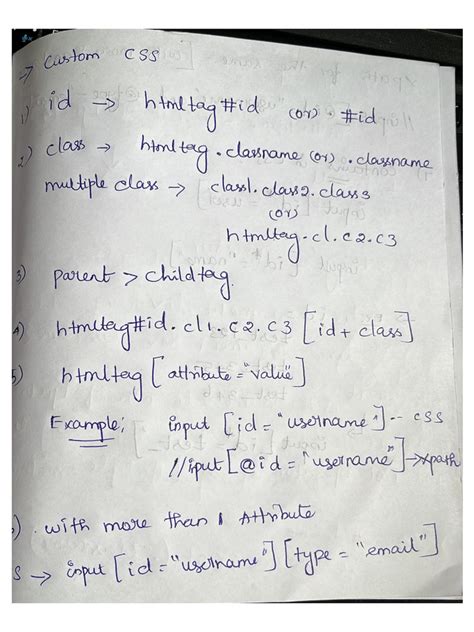 → Custom CSS
1) id → htmltag#id (or) #id
2) class → htmltag.classname (or) .classname
multiple class → class1.class2.class3
(or)
htmltag.c1.c2.c3
3) parent > childtag
4) htmltag#id.cl1.c2.c3 [id + class]
5) htmltag [attribute = "value"]
Example: input [id = "username"] -- CSS
//iput[@id = "username"] → xpath
) with more than 1 Attribute
S → input [id = "username"] [type = "email"]